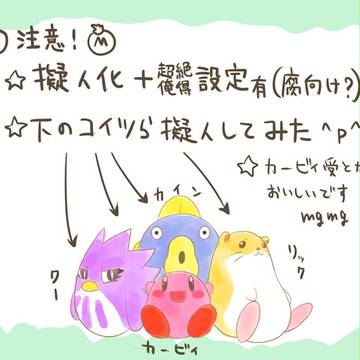 注意!
☆擬人化+超絶俺得設定有(腐向け?)
☆下のコイツら擬人してみた^p^
☆カービィ受とか
おいしいです
mgmg
カイン
リック
クー
カービィ